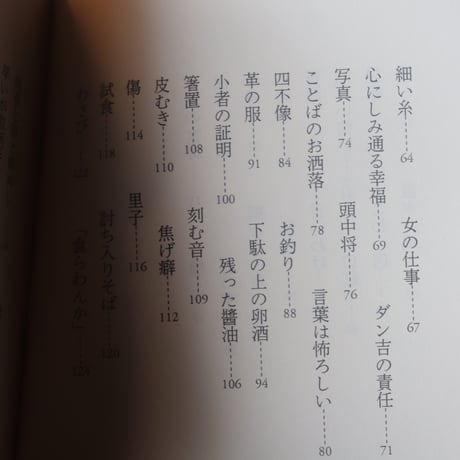 細い糸 64 女の仕事 67
心にしみ通る幸福 69 ダン吉の責任 71
写真 74 頭中将 76
ことばのお洒落 78 言葉は怖ろしい 80
四不像 84 お釣り 88
革の服 91 下駄の上の卵酒 94
小者の証明 100 残った醬油 106
箸置 108 刻む音 109
皮むき 110 焦げ癖 112
傷 114 里子 116
試食 118 討ち入りそば 120
わさび 122 「食らわんか」 124